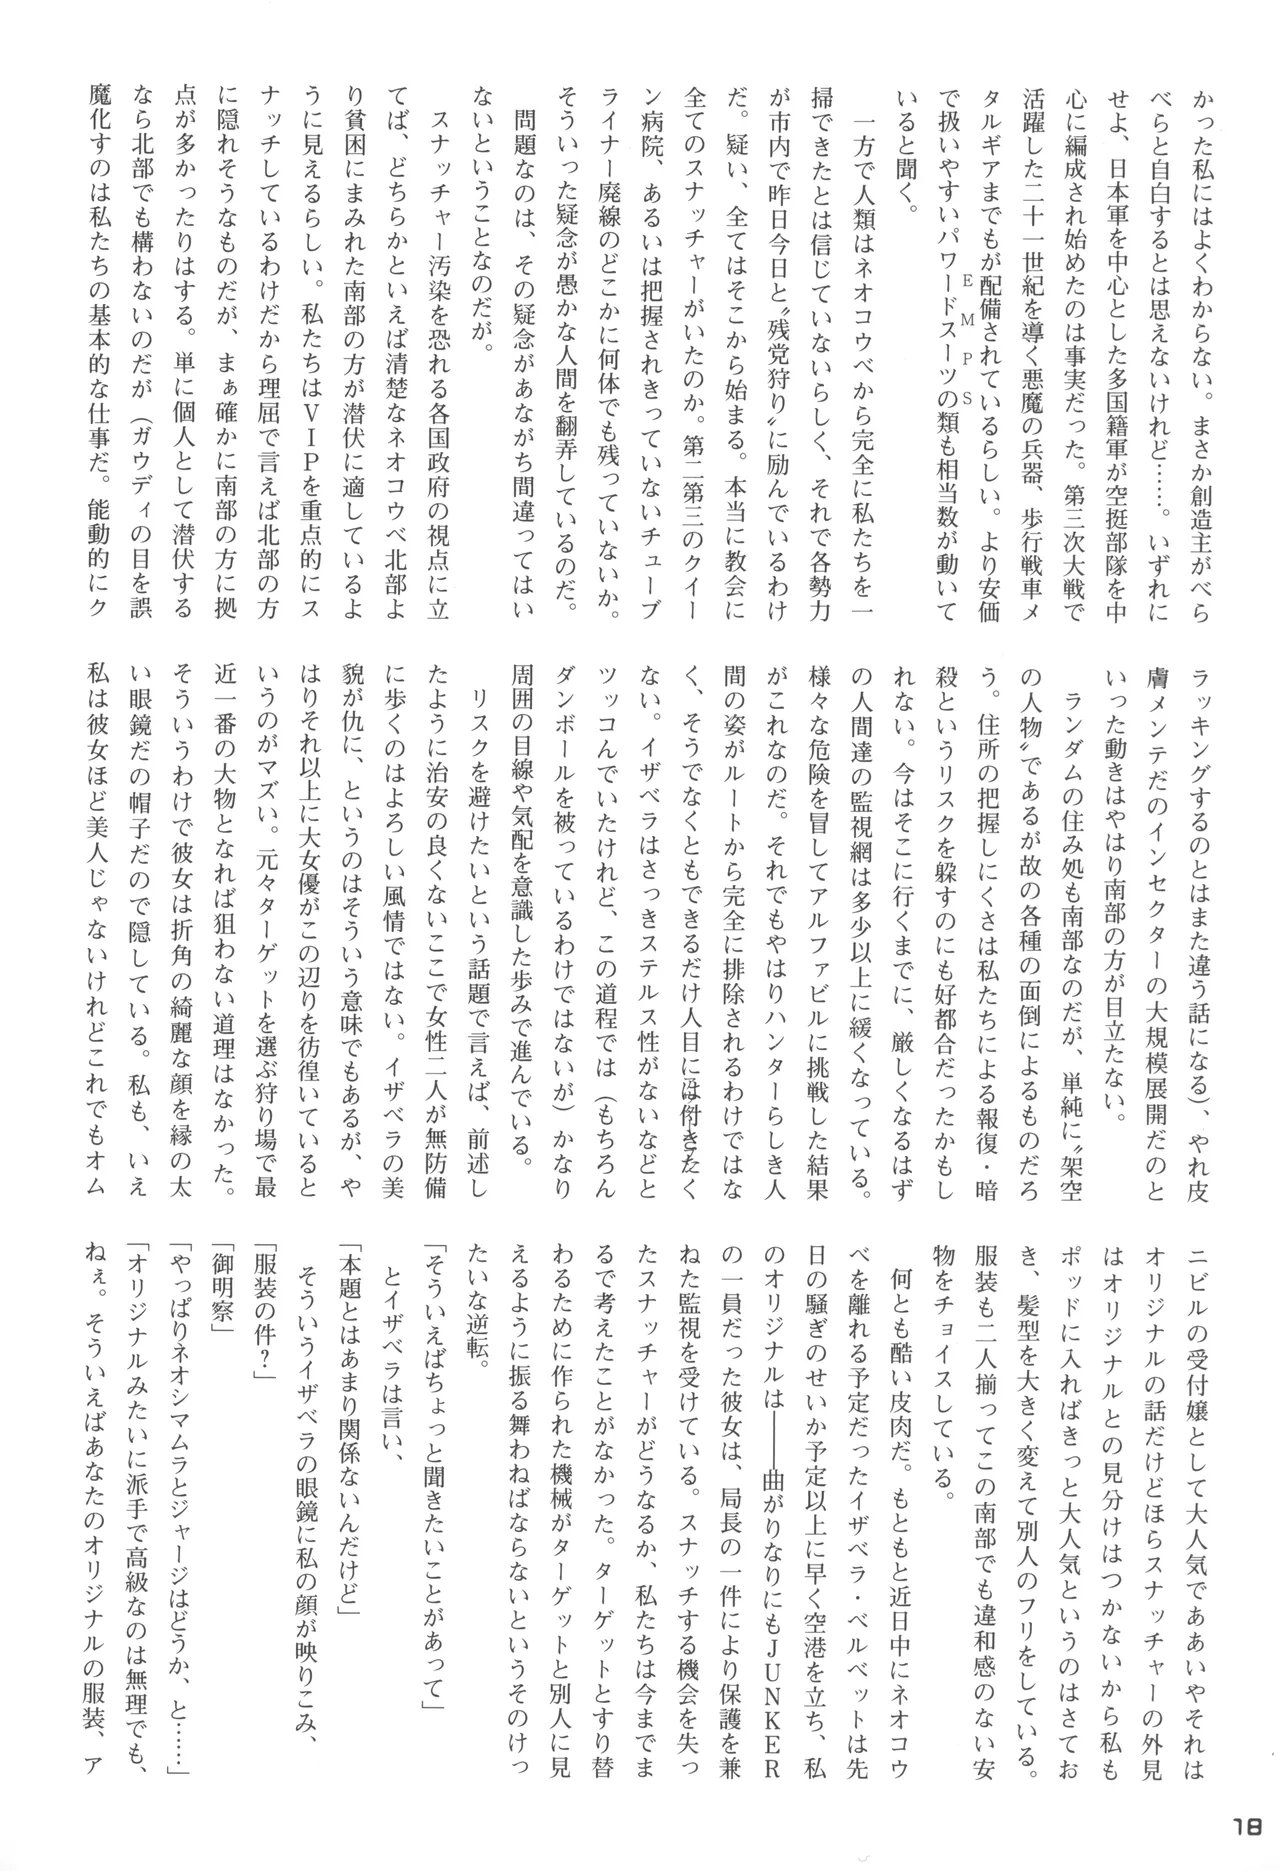 かった私にはよくわからない。まさか創造主がべら
べらと自白するとは思えないけれど……。いずれに
せよ、日本軍を中心とした多国籍軍が空挺部隊を中
心に編成され始めたのは事実だった。第三次大戦で
活躍した二十一世紀を導く悪魔の兵器、歩行戦車メ
タルギアまでもが配備されているらしい。より安価
EMPS
で扱いやすいパワードスーツの類も相当数が動いて
いると聞く。
一方で人類はネオコウベから完全に私たちを一
掃できたとは信じていないらしく、それで各勢力
が市内で昨日今日と〝残党狩り〟に励んでいるわけ
だ。疑い、全てはそこから始まる。本当に教会に
全てのスナッチャーがいたのか。第二第三のクイー
ン病院、あるいは把握されきっていないチューブ
ライナー廃線のどこかに何体でも残っていないか。
そういった疑念が愚かな人間を翻弄しているのだ。
問題なのは、その疑念があながち間違ってはい
ないということなのだが。
スナッチャー汚染を恐れる各国政府の視点に立
てば、どちらかといえば清楚なネオコウベ北部よ
り貧困にまみれた南部の方が潜伏に適しているよ
うに見えるらしい。私たちはVIPを重点的にス
ナッチしているわけだから理屈で言えば北部の方
に隠れそうなものだが、まぁ確かに南部の方に拠
点が多かったりはする。単に個人として潜伏する
なら北部でも構わないのだが（ガウディの目を誤
魔化すのは私たちの基本的な仕事だ。能動的にク
ラッキングするのとはまた違う話になる）、やれ皮
膚メンテだのインセクターの大規模展開だのと
いった動きはやはり南部の方が目立たない。
ランダムの住み処も南部なのだが、単純に〝架空
の人物〟であるが故の各種の面倒によるものだろ
う。住所の把握しにくさは私たちによる報復・暗
殺というリスクを躱すのにも好都合だったかもし
れない。今はそこに行くまでに、厳しくなるはず
の人間達の監視網は多少以上に緩くなっている。
様々な危険を冒してアルファビルに挑戦した結果
がこれなのだ。それでもやはりハンターらしき人
間の姿がルートから完全に排除されるわけではな
く、そうでなくともできるだけ人目には付きたく
ない。イザベラはさっきステルス性がないなどと
ツッコんでいたけれど、この道程では（もちろん
ダンボールを被っているわけではないが）かなり
周囲の目線や気配を意識した歩みで進んでいる。
リスクを避けたいという話題で言えば、前述し
たように治安の良くないここで女性二人が無防備
に歩くのはよろしい風情ではない。イザベラの美
貌が仇に、というのはそういう意味でもあるが、や
はりそれ以上に大女優がこの辺りを彷徨いていると
いうのがマズい。元々ターゲットを選ぶ狩り場で最
近一番の大物となれば狙わない道理はなかった。
そういうわけで彼女は折角の綺麗な顔を縁の太
い眼鏡だの帽子だので隠している。私も、いえ
私は彼女ほど美人じゃないけれどこれでもオム
ニビルの受付嬢として大人気でああいやそれは
オリジナルの話だけどほらスナッチャーの外見
はオリジナルとの見分けはつかないから私も
ポッドに入ればきっと大人気というのはさてお
き、髪型を大きく変えて別人のフリをしている。
服装も二人揃ってこの南部でも違和感のない安
物をチョイスしている。
何とも酷い皮肉だ。もともと近日中にネオコウ
ベを離れる予定だったイザベラ・ベルベットは先
日の騒ぎのせいか予定以上に早く空港を立ち、私
のオリジナルは――曲がりなりにもJUNKER
の一員だった彼女は、局長の一件により保護を兼
ねた監視を受けている。スナッチする機会を失っ
たスナッチャーがどうなるか、私たちは今までま
るで考えたことがなかった。ターゲットとすり替
わるために作られた機械がターゲットと別人に見
えるように振る舞わねばならないというそのけっ
たいな逆転。
「そういえばちょっと聞きたいことがあって」
とイザベラは言い、
「本題とはあまり関係ないんだけど」
そういうイザベラの眼鏡に私の顔が映りこみ、
「服装の件？」
「御明察」
「やっぱりネオシマムラとジャージはどうか、と……」
「オリジナルみたいに派手で高級なのは無理でも、
ねぇ。そういえばあなたのオリジナルの服装、ア
18